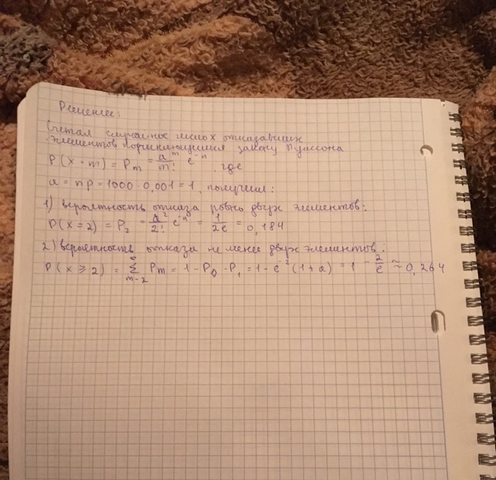 Решение:
Считая случайное число x отказавших
элементов подчиняющимся закону Пуассона
P(x=m) = Pm = a^m/m! e^-n, где
a = np = 1000 · 0,001 = 1, получим:
1) вероятность отказа ровно двух элементов:
P(x=2) = P2 = a^2/2! e^-n = 1/2e = 0,184
2) вероятность отказа не менее двух элементов.
P(x ≥ 2) = Σ m=2 Pm = 1 - P0 - P1 = 1 - e^-1 (1+a) = 1 - 2/e ≈ 0,264